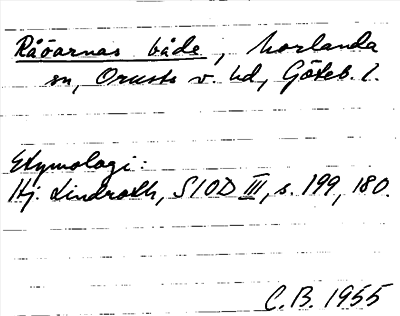 Råöarnas både, Morlanda
sn, Orusts v. hd, Göteb. l.
Etymologi:
Hj. Lindroth, SIOD III, s. 199, 180.
C.B. 1955